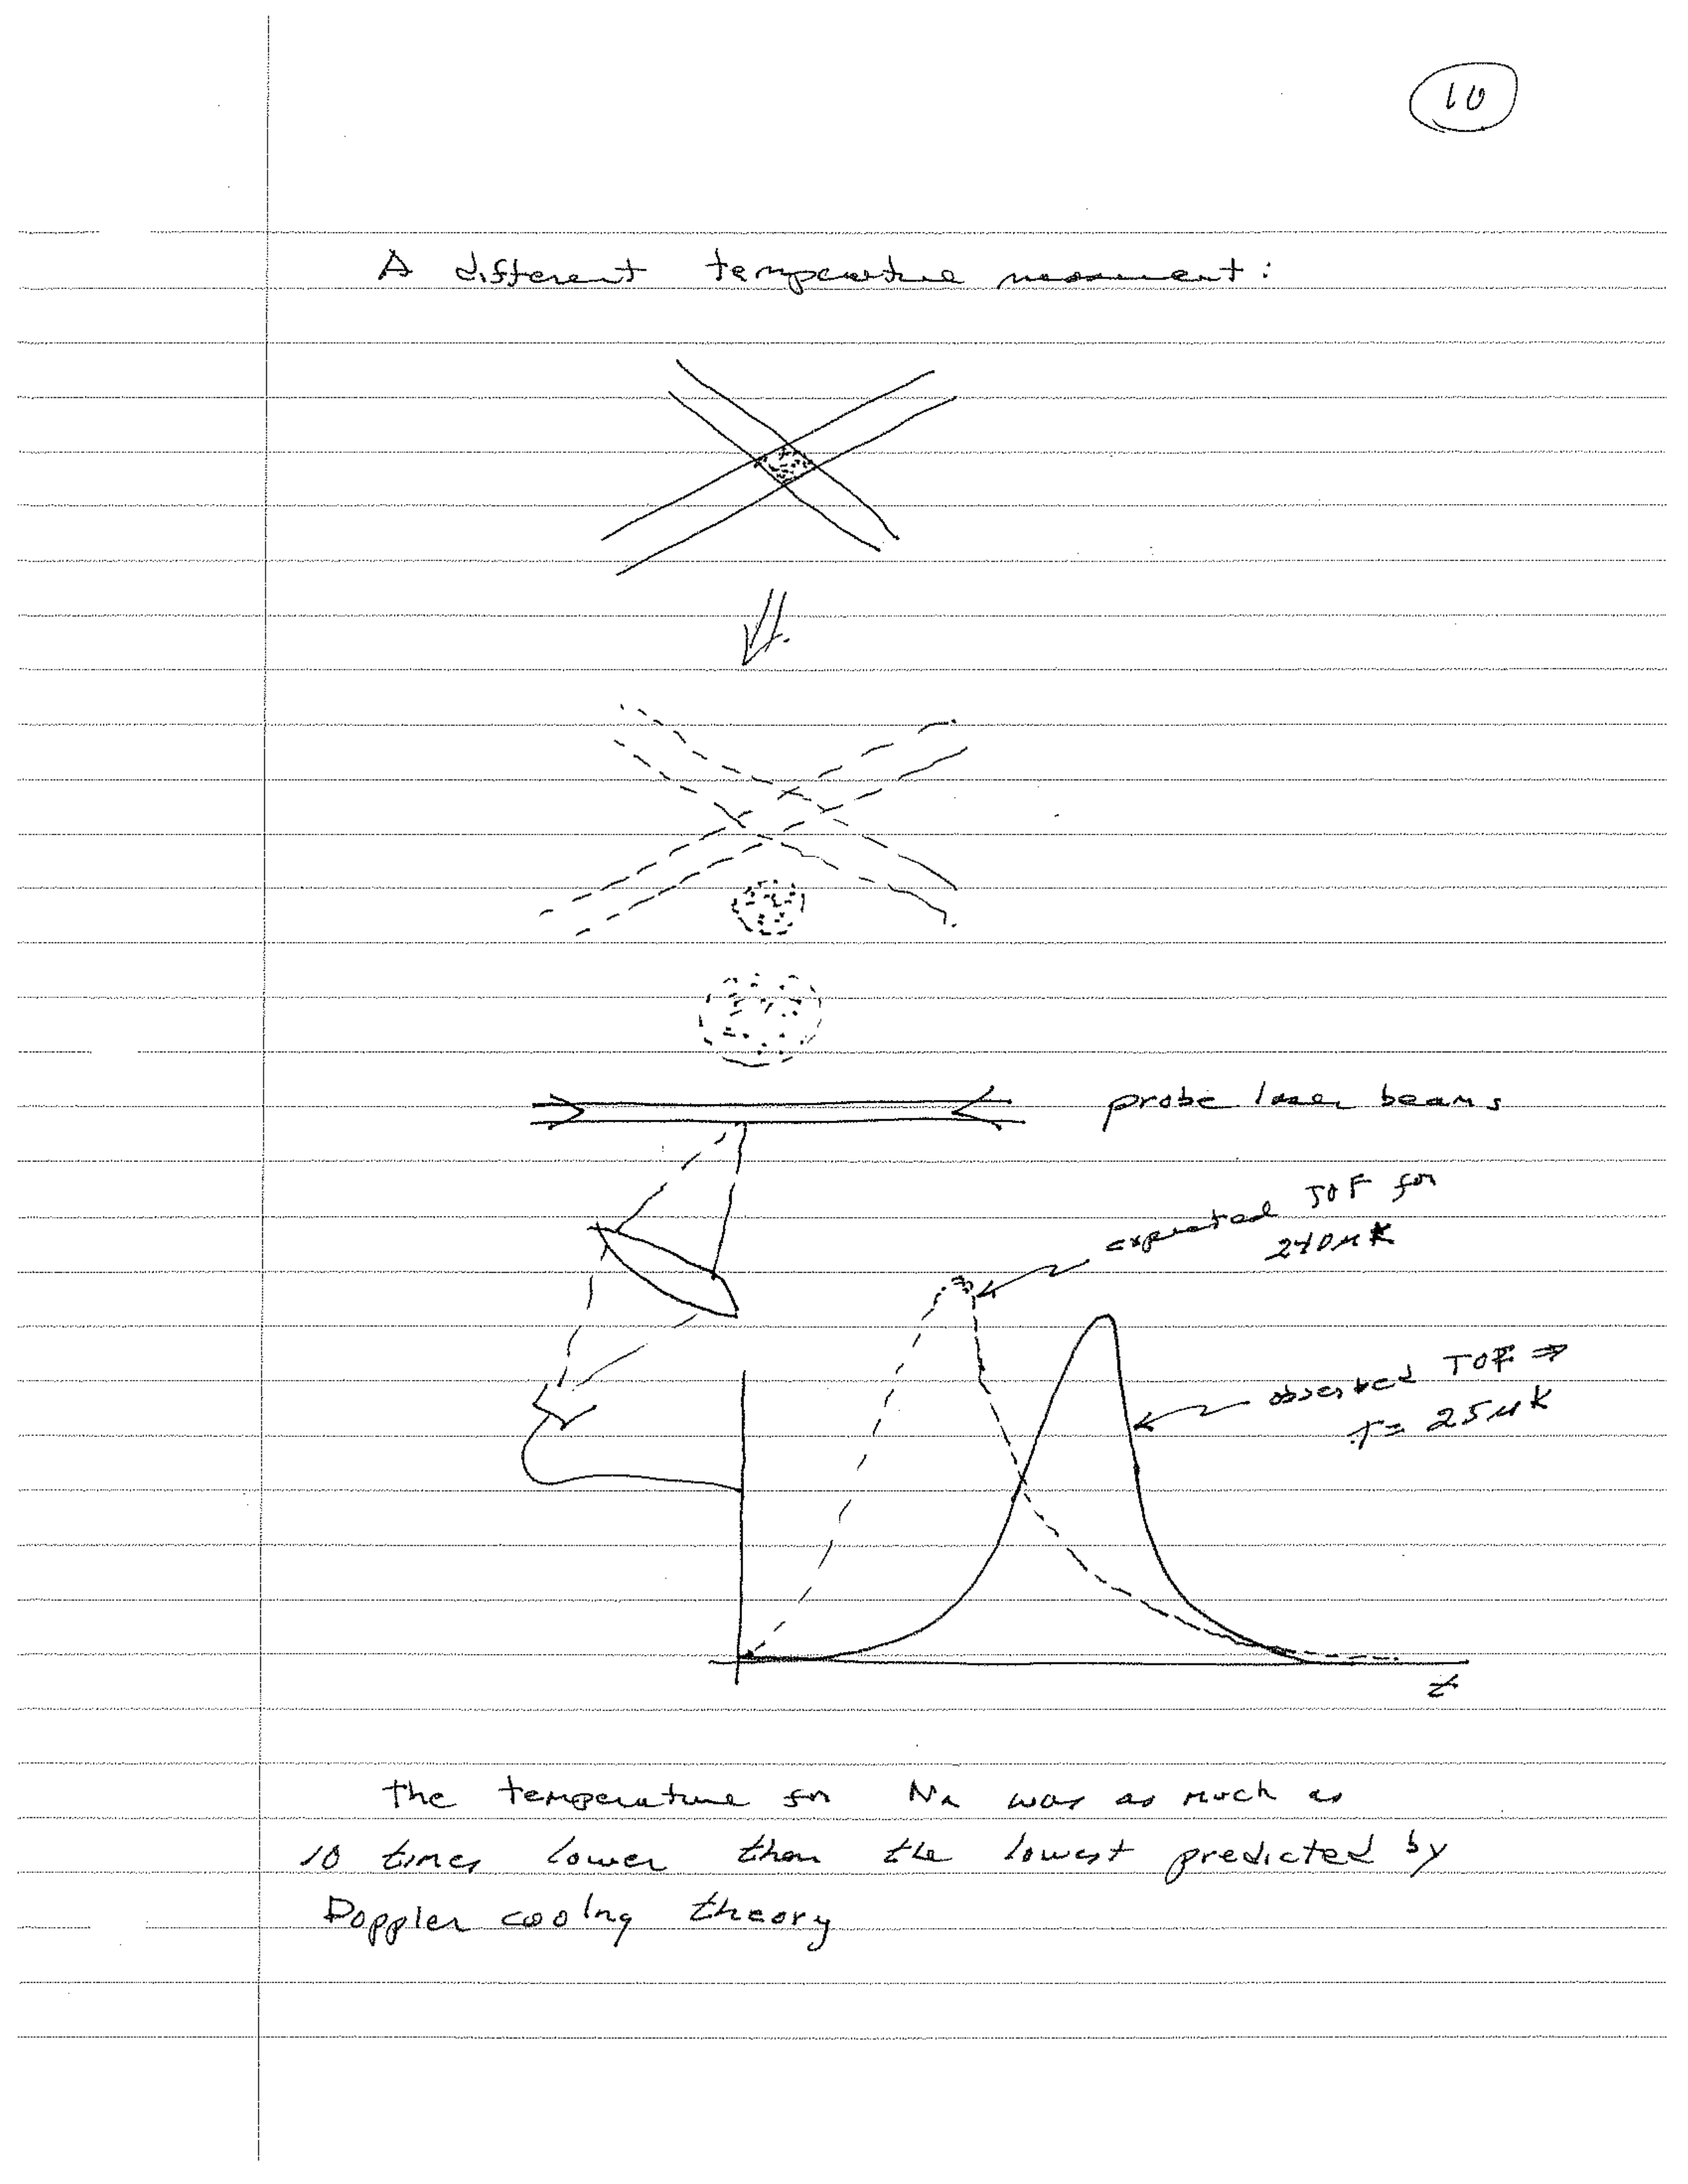 10
A different temperature measurement:
probe laser beams
expected TOF for
240 μK
observed TOF ⇒
T = 25 μK
t
The temperature for Na was as much as
10 times lower than the lowest predicted by
Doppler cooling theory